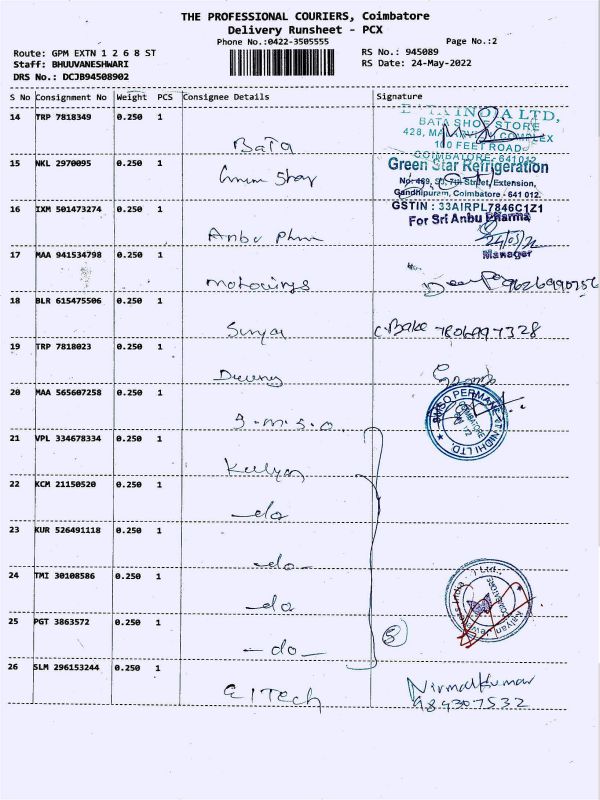 THE PROFESSIONAL COURIERS, Coimbatore
Delivery Runsheet - PCX
Phone No.:0422-3505555
Page No.:2
Route: GPM EXTN 1 2 6 8 ST
RS No.: 945089
Staff: BHUUVANESHWARI
RS Date: 24-May-2022
DRS No.: DCJB94508902
S No Consignment No Weight PCS Consignee Details Signature
14 TRP 7818349 0.250 1
Bata
BATA INDIA LTD,
BATA SHOE STORE
428, COMPLEX
100 FEET ROAD
COIMBATORE-641012
15 NKL 2970095 0.250 1
Star
Green Star Refrigeration
No: 489, 7th Street, Extension,
Gandhipuram, Coimbatore - 641 012.
GSTIN : 33AIRPL7846C1Z1
16 IXM 501473274 0.250 1
Anbu Phm
For Sri Anbu Pharma
24/05/22
Manager
17 MAA 941534798 0.250 1
motowings
9626990256
18 BLR 615475506 0.250 1
Surya
C. Bake 7806997328
19 TRP 7818023 0.250 1
20 MAA 565607258 0.250 1
B.M.S.O.
PERMANENT NIDHI LTD.
COIMBATORE
21 VPL 334678334 0.250 1
Kalyan
22 KCM 21150520 0.250 1
-do
23 KUR 526491118 0.250 1
-do-
24 TMI 30108586 0.250 1
-do
25 PGT 3863572 0.250 1
-do-
5
Kalyan Jewellers India Ltd.
26 SLM 296153244 0.250 1
EITech
Nirmalkumar
984307532